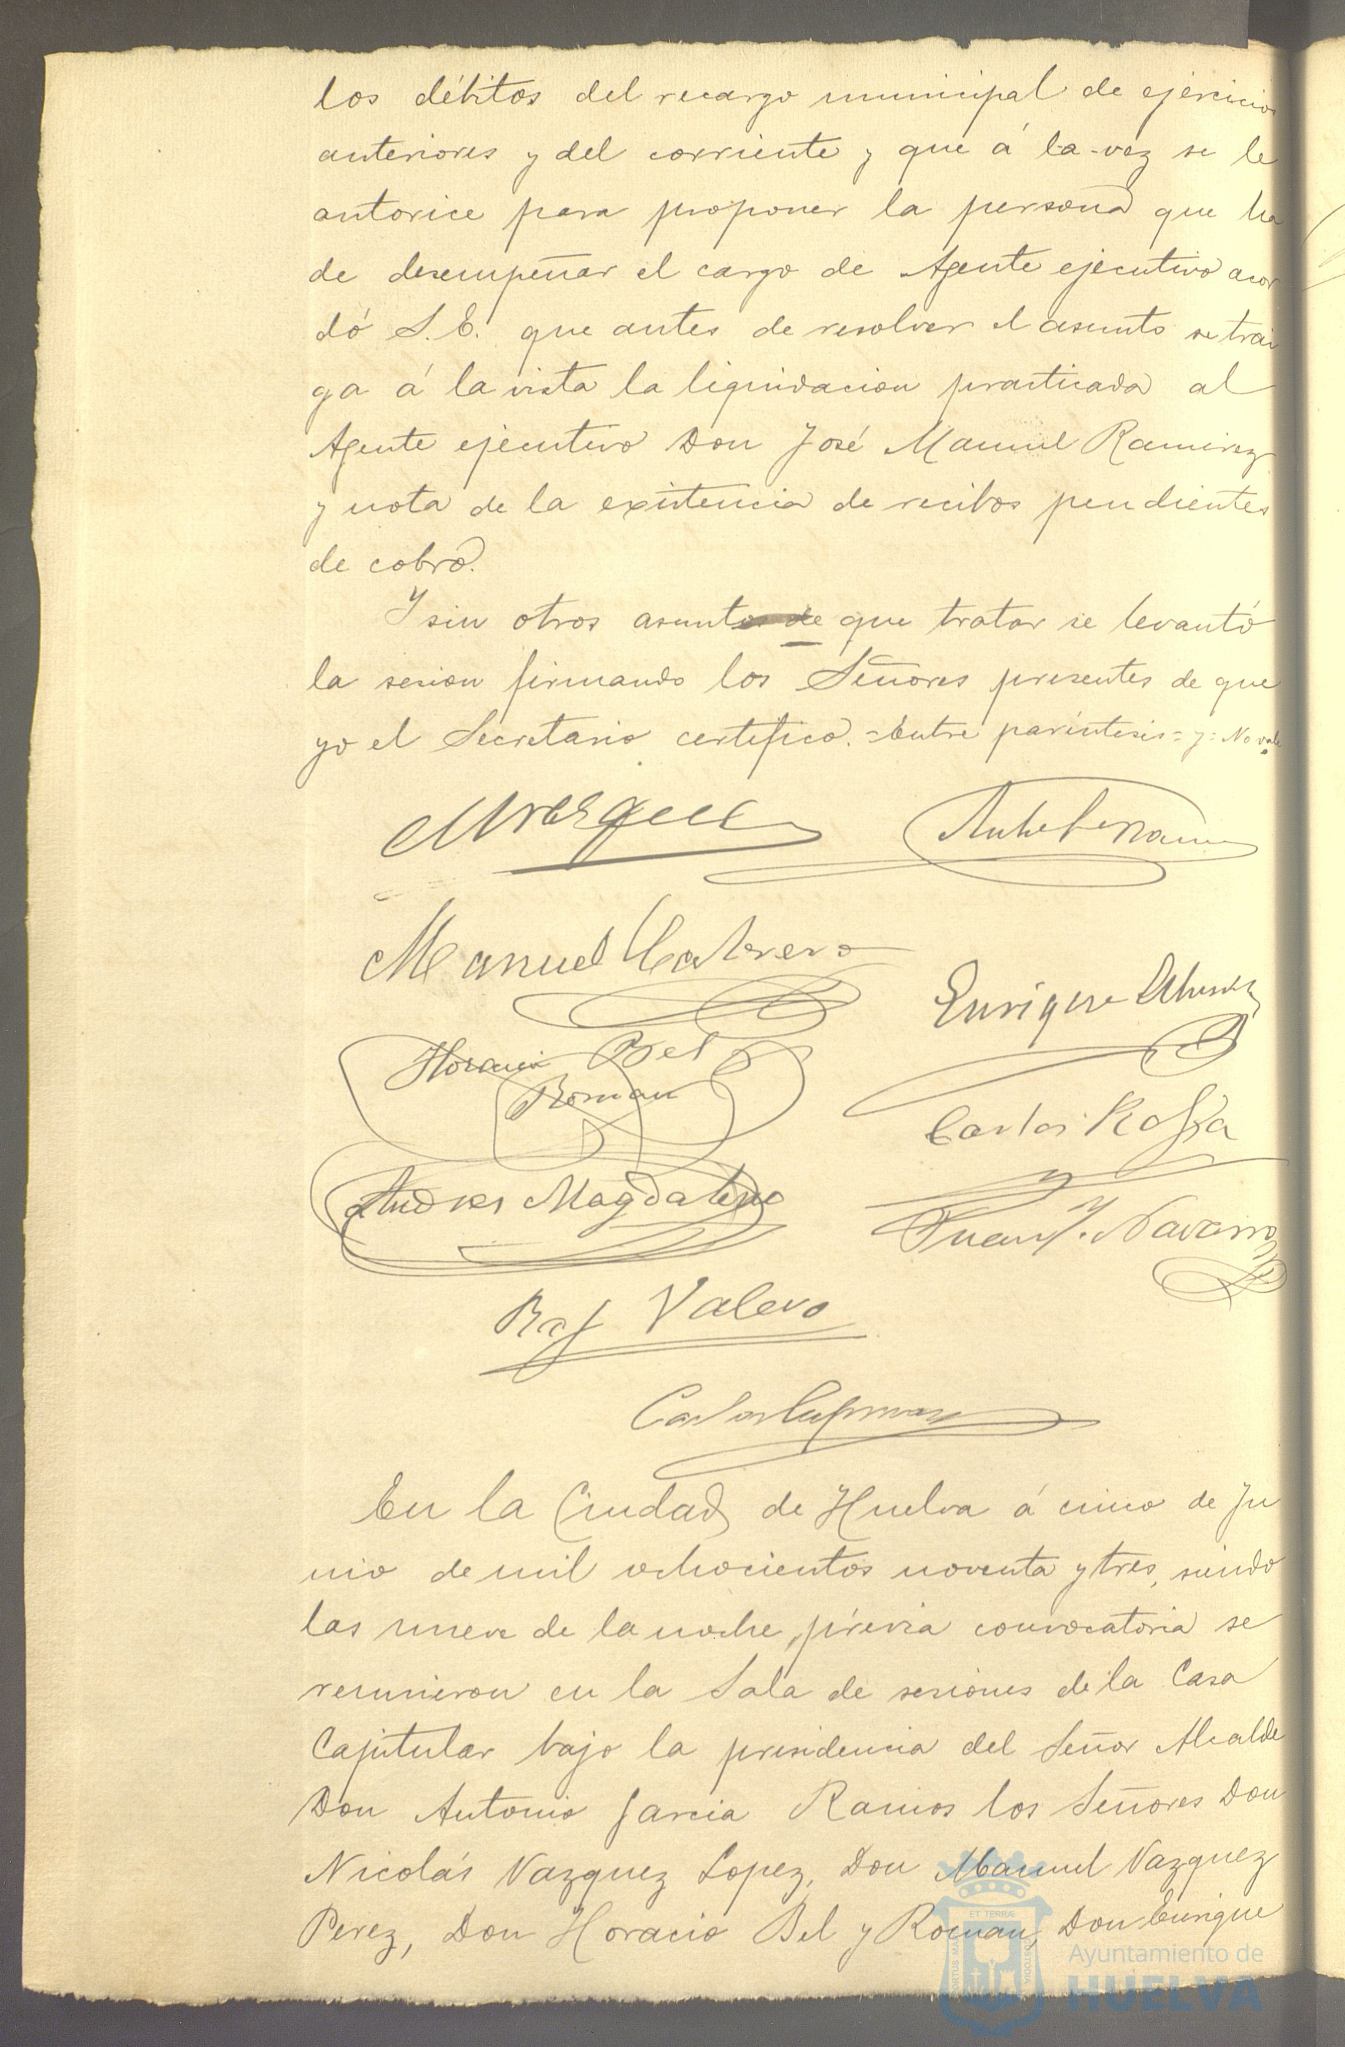 los débitos del recargo municipal de ejercicios
anteriores y del corriente y que á la vez se le
autorice para proponer la persona que ha
de desempeñar el cargo de Agente ejecutivo acor
dó S.E. que antes de resolver el asunto se trai
ga á la vista la liquidacion practicada al
Agente ejecutivo Don José Manuel Ramirez
y nota de la existencia de recibos pendientes
de cobro.
Y sin otros asuntos de que tratar se levantó
la sesion firmando los Señores presentes de que
yo el Secretario certifico. = Entre paréntesis = y = No vale
Manuel Cabrera
Enrique
Horacio Bel
Roman
Carlos
Andres Magdaleno
Juan J. Navarro
Raf Valero
Carlos
En la Ciudad de Huelva á cinco de Ju
nio de mil ochocientos noventa y tres, siendo
las nueve de la noche, prévia convocatoria se
reunieron en la Sala de sesiones de la Casa
Capitular bajo la presidencia del Señor Alcalde
Don Antonio Garcia Ramos los Señores Don
Nicolás Vazquez Lopez, Don Manuel Vazquez
Perez, Don Horacio Bel y Roman, Don Enrique
Ayuntamiento de
HUELVA